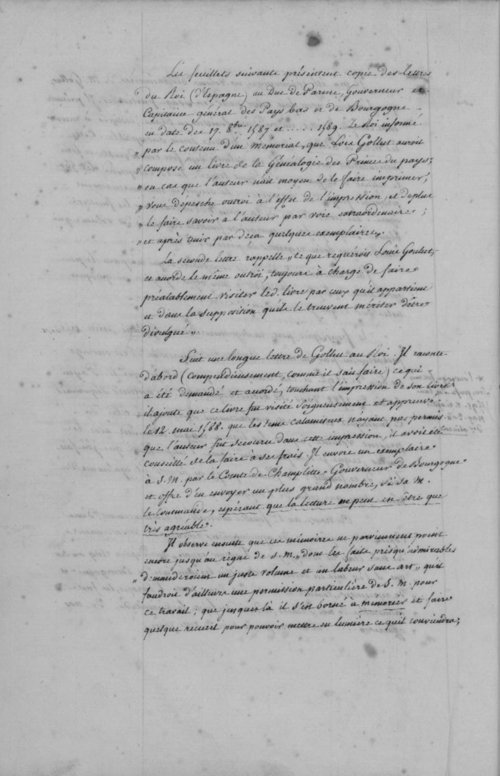 Les feuillets suivants présentent copie des lettres
du Roi (d'Espagne) au Duc de Parme, Gouverneur et
Capitaine général des Pays bas et de Bourgogne
en date des 17. 8bre 1587 et ..... 1589. Le Roi informé
par le contenu d'un mémorial, que Lois Gollut auroit
composé un livre de la Généalogie des Princes du pays;
"en cas que l'auteur nait moyen de le faire imprimer;
"vous depesche outroi à l'effet de l'impression, et deplus
"le faire savoir à l'auteur par voie extraordinaire;
"et après avoir par deça quelques exemplaires,
la seconde lettre rappelle "ce que requerois Louis Goulut,
et acorde le même outroi, toujours à charge de faire
préalablement visiter led. livre par ceux qu'il appartient
et dans la supposition qu'ils le trouvent mériter d'être
divulgué"
Suit une longue lettre de Gollut au Roi. Il raconte
d'abord (compendieusement, comme il sait faire) ce qui
a été demandé et acordé, touchant l'impression de son livre
il ajoute que ce livre fut visité soigneusement et approuvé
le 12. mai 1588. que les tems calamiteux n'ayant pas permis
que l'auteur fut secouru dans cette impression, il avoit été
conseillé de la faire à ses frais. Il envoie un exemplaire
à S.M. par le Comte de Champlitte Gouverneur de Bourgogne
et offre d'en envoyer un plus grand nombre, si sa M.
le commande, espérant que la lecture ne peut en être que
très agréable.
Il observe ensuite que ces mémoires ne parviennent point
encore jusqu'au règne de S.M. "dont les faits presqu'admirables
"demanderoient un juste volume et un labeur sans art, qu'il
faudroit d'ailleurs une permission particulière de S.M. pour
ce travail; que jusques là il s'est borné à mémorier et faire
quelque recueil pour pouvoir mettre en lumière ce qu'il conviendra;